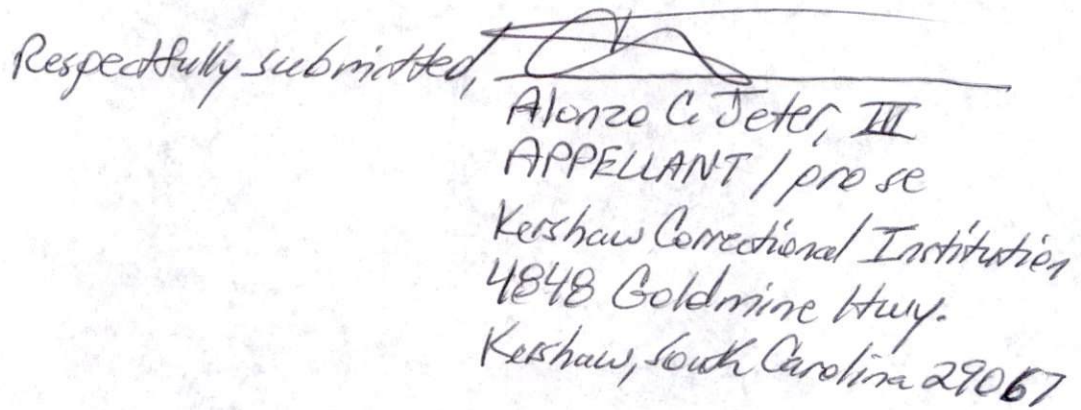 Respectfully submitted,
Alonzo C. Jeter, III
APPELLANT / pro se
Kershaw Correctional Institution
4848 Goldmine Hwy.
Kershaw, South Carolina 29067